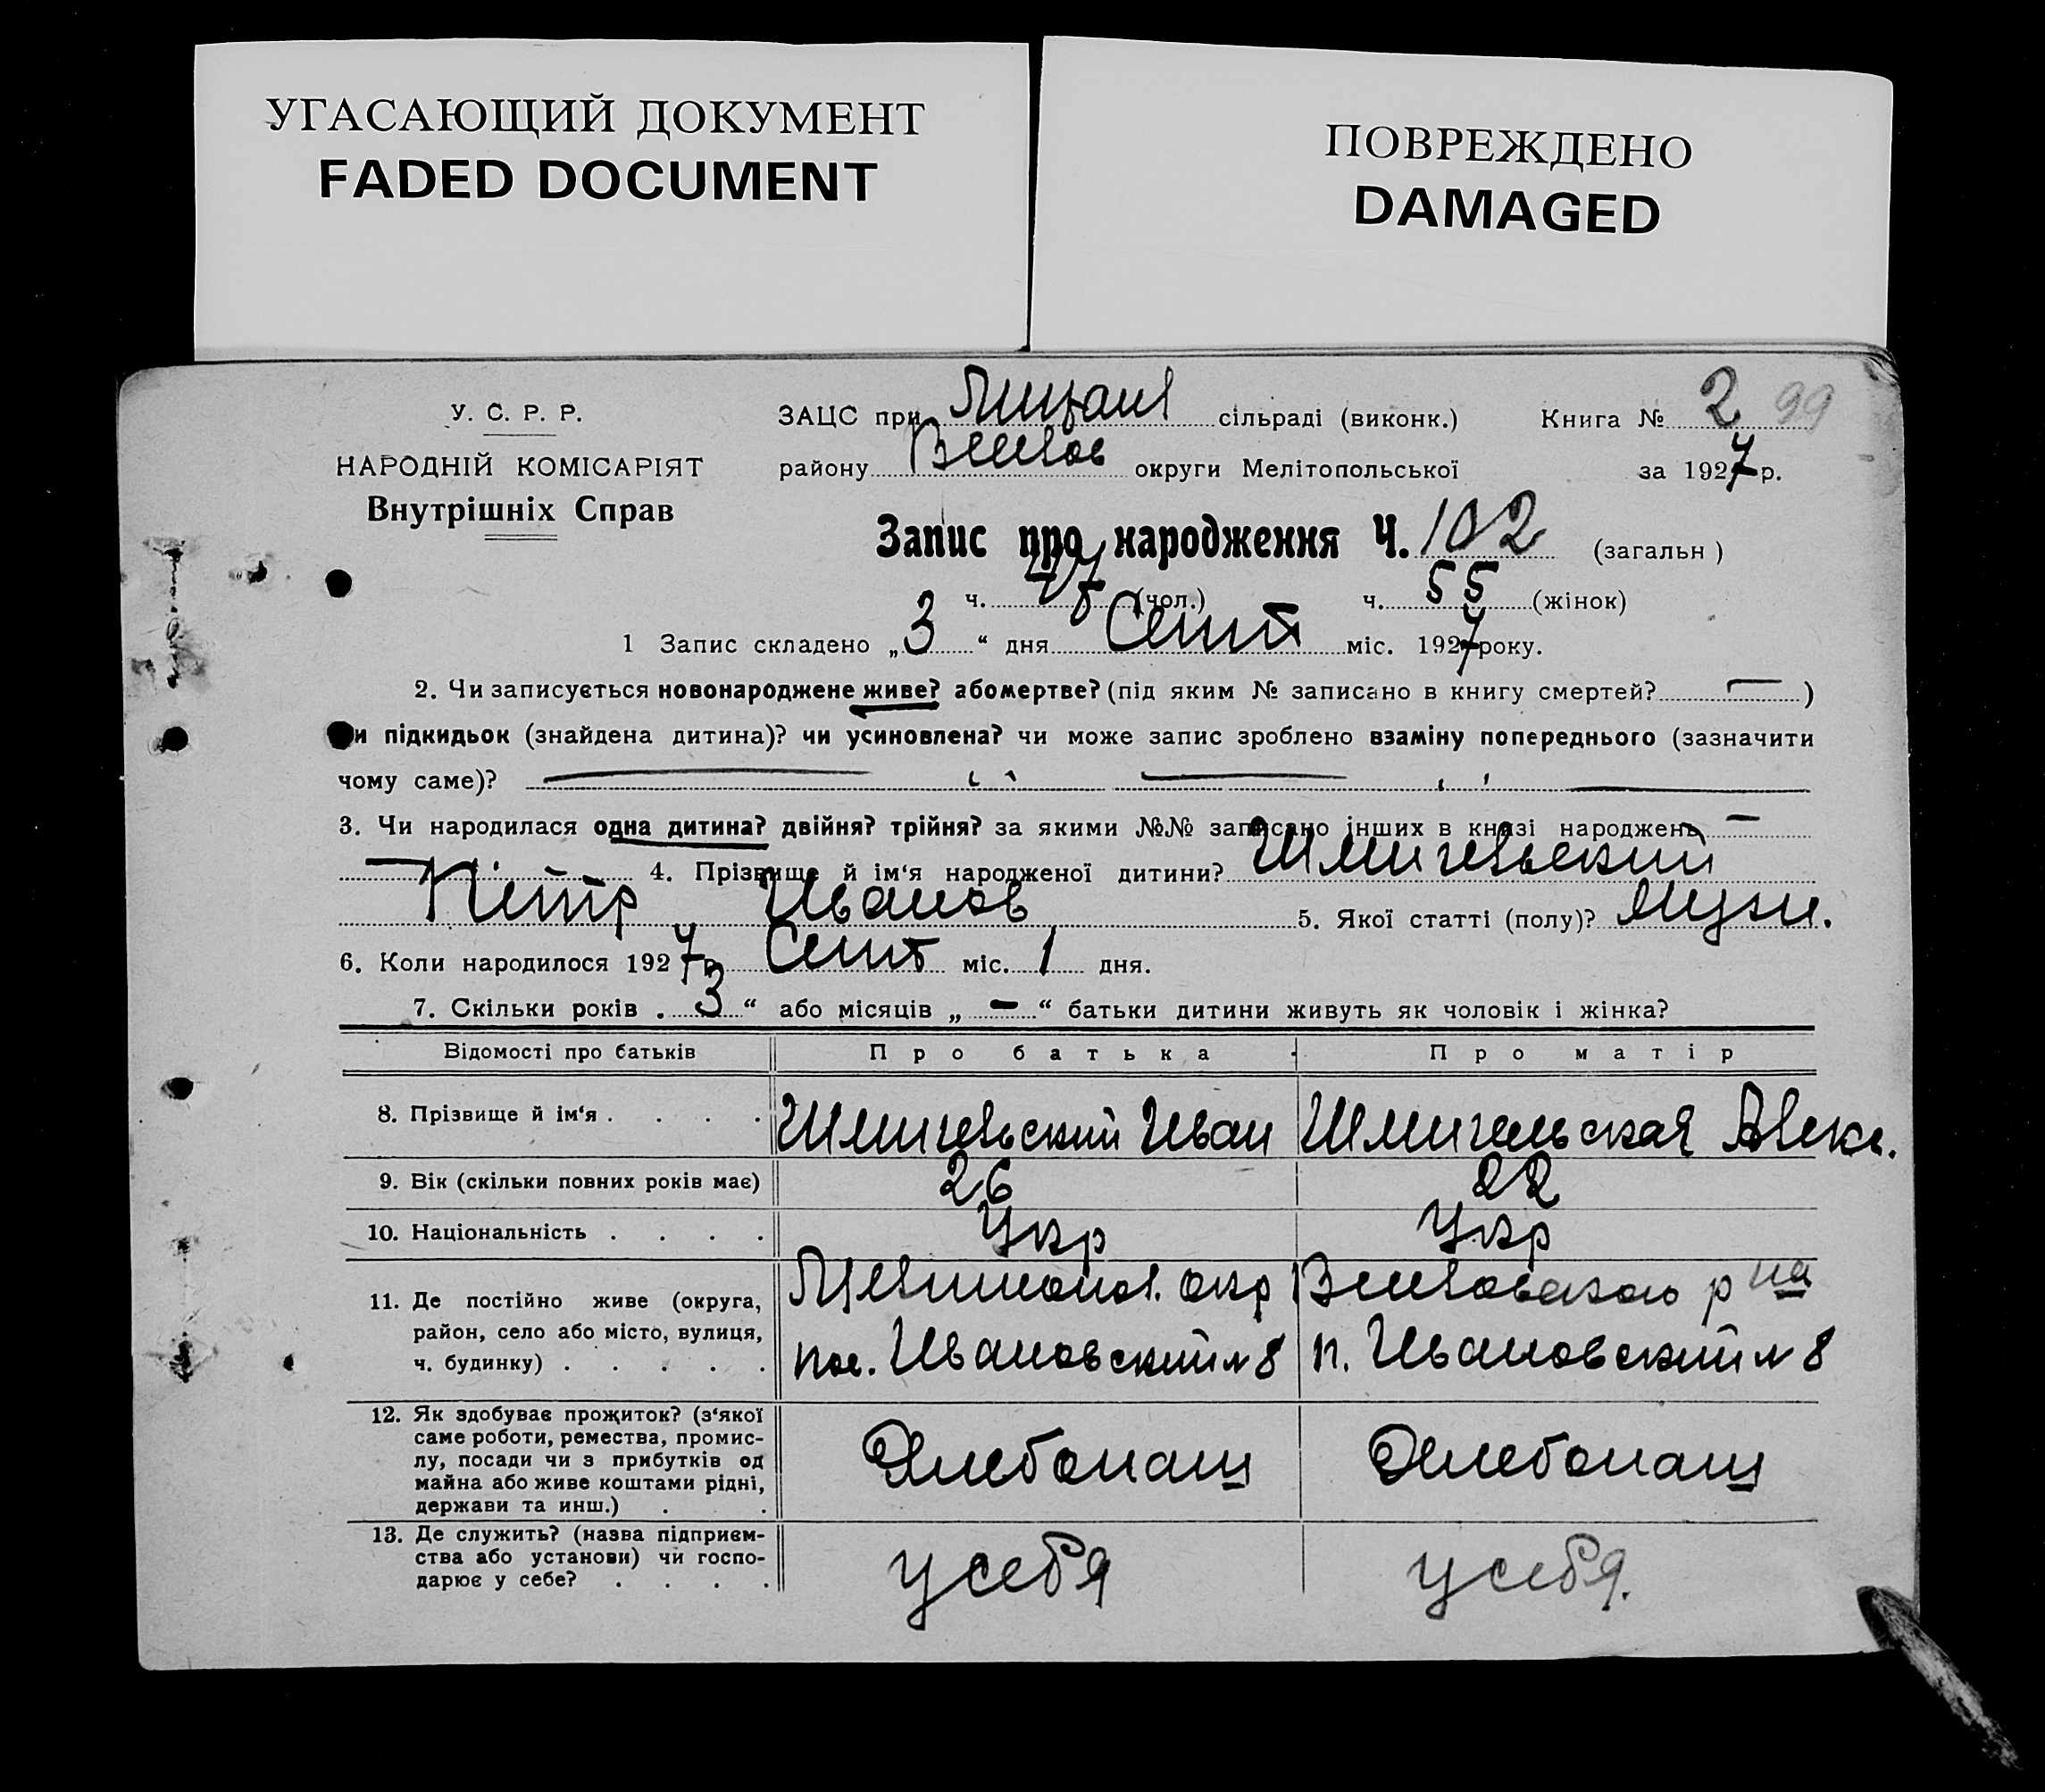 УГАСАЮЩИЙ ДОКУМЕНТ
FADED DOCUMENT
ПОВРЕЖДЕНО
DAMAGED
У. С. Р. Р.
НАРОДНІЙ КОМІСАРІЯТ
Внутрішніх Справ
ЗАЦС при сільраді (виконк.) Книга № 2 99
району округи Мелітопольської за 1927 р.
Запис про народження Ч. 102 (загальн )
ч. 47 (чол.) ч. 55 (жінок)
1 Запис складено „3“ дня Сент міс. 1927 року.
2. Чи записується новонароджене живе? або мертве? (під яким № записано в книгу смертей? — )
чи підкидьок (знайдена дитина)? чи усиновлена? чи може запис зроблено взаміну попереднього (зазначити
чому саме)?
3. Чи народилася одна дитина? двійня? трійня? за якими №№ записано інших в книзі народжень —
— 4. Прізвище й ім‘я народженої дитини? Шмигельский
Петр Иванов 5. Якої статті (полу)? Мужч.
6. Коли народилося 1927 р. Сент міс. 1 дня.
7. Скільки років „3“ або місяців „ — “ батьки дитини живуть як чоловік і жінка?
Відомості про батьків Про батька Про матір
8. Прізвище й ім‘я . . . . Шмигельский Иван Шмигельская Алекс.
9. Вік (скільки повних років має) 26 22
10. Національність . . . . Укр Укр
11. Де постійно живе (округа, Мелитопол. окр Веселовского р на
район, село або місто, вулиця,
ч. будинку) . . . . . пос. Ивановский № 8 п. Ивановский № 8
12. Як здобуває прожиток? (з‘якої
саме роботи, ремества, промис-
лу, посади чи з прибутків од
майна або живе коштами рідні, Хлебопаш Хлебопаш
держави та инш.) . .
13. Де служить? (назва підприєм-
ства або установи) чи госпо-
дарює у себе? . . . . у себя у себя.